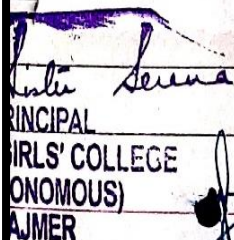 Serena
RINCIPAL
GIRLS' COLLEGE
ONOMOUS)
AJMER